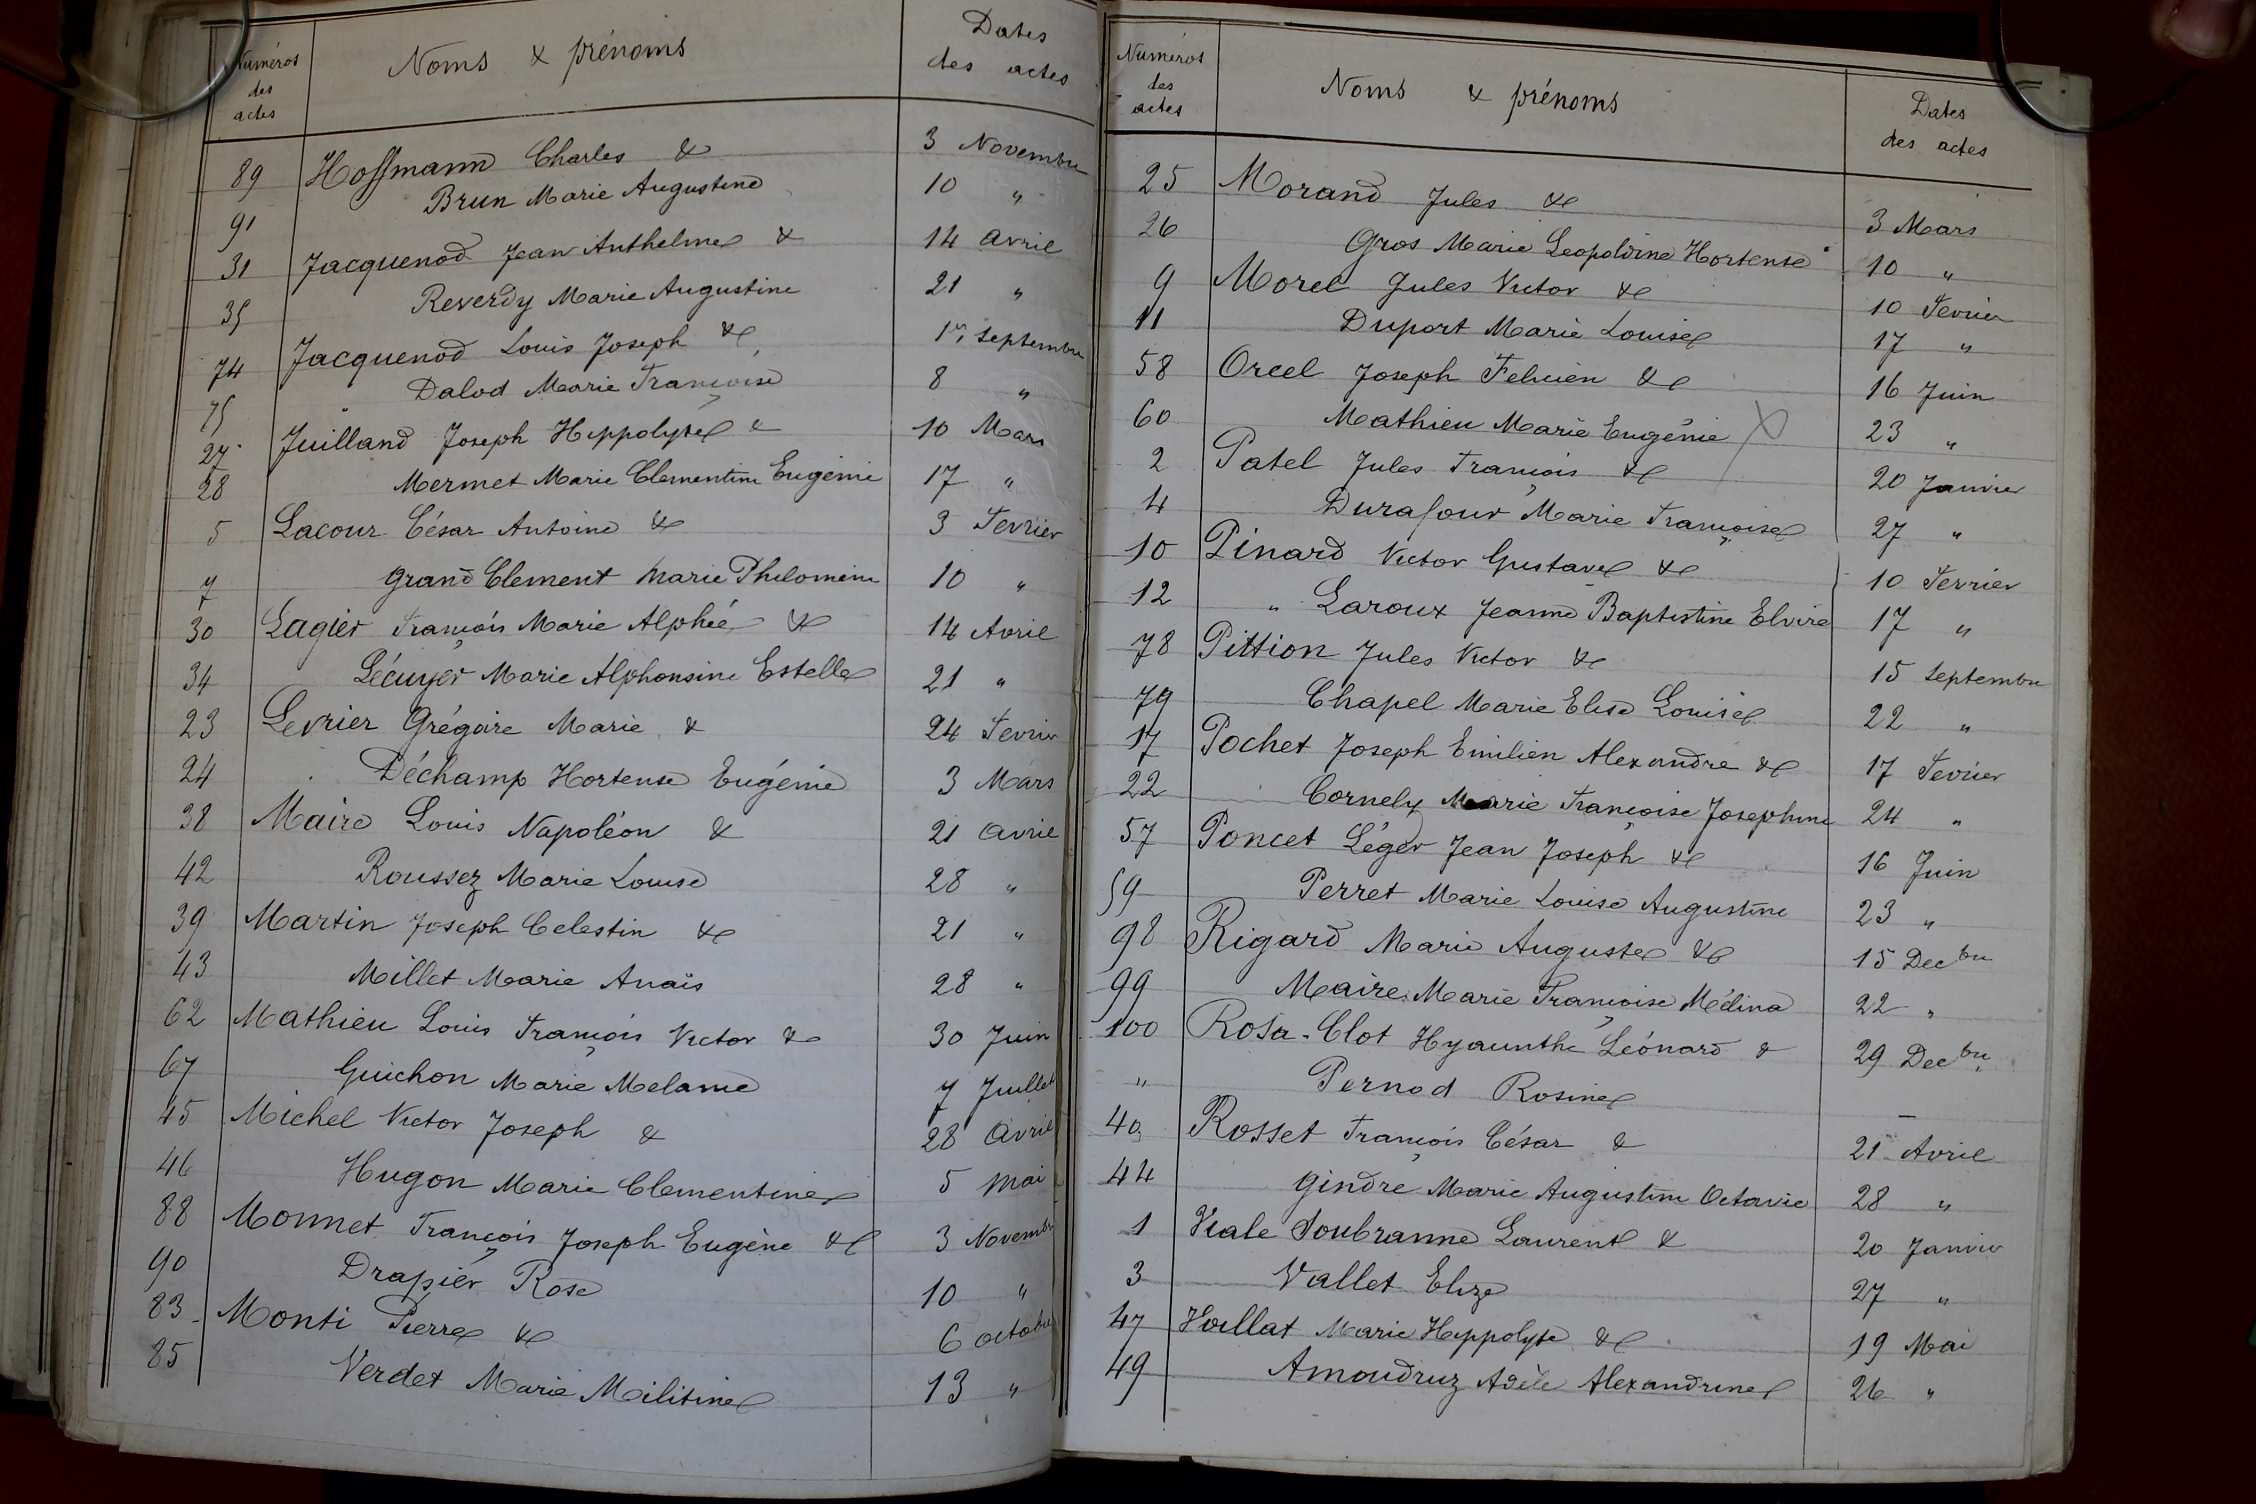 Numéros des actes
Noms & prénoms
Dates des actes
89 Hoffmann Charles & 3 Novembre
91 Brun Marie Augustine 10 "
31 Jacquenod Jean Anthelme & 14 Avril
35 Reverdy Marie Augustine 21 "
74 Jacquenod Louis Joseph & 1er Septembre
75 Dalod Marie Françoise 8 "
27 Juilland Joseph Hippolyte & 10 Mars
28 Mermet Marie Clementine Eugénie 17 "
5 Lacour César Antoine & 3 Fevrier
7 Grand Clement Marie Philomène 10 "
30 Lagier François Marie Alphée & 14 Avril
34 Lécuyer Marie Alphonsine Estelle 21 "
23 Levrier Grégoire Marie & 24 Fevrier
24 Déchamp Hortense Eugénie 3 Mars
38 Maire Louis Napoléon & 21 Avril
42 Roussez Marie Louise 28 "
39 Martin Joseph Celestin & 21 "
43 Millet Marie Anaïs 28 "
62 Mathieu Louis François Victor & 30 Juin
67 Guichon Marie Melanie 7 Juillet
45 Michel Victor Joseph & 28 Avril
46 Hugon Marie Clementine 5 Mai
88 Monnet François Joseph Eugène & 3 Novembre
90 Drapier Rose 10 "
83 Monti Pierre & 6 octobre
85 Verdet Marie Militine 13 "
Numéros des actes
Noms & prénoms
Dates des actes
25 Morand Jules & 3 Mars
26 Gros Marie Leopoldine Hortense 10 "
9 Morel Jules Victor & 10 Fevrier
11 Duport Marie Louise 17 "
58 Orcel Joseph Felicien & 16 Juin
60 Mathieu Marie Eugénie 23 "
2 Patel Jules François & 20 Janvier
4 Durafour Marie Françoise 27 "
10 Pinard Victor Gustave & 10 Fevrier
12 " Laroux Jeanne Baptistine Elvire 17 "
78 Pittion Jules Victor & 15 Septembre
79 Chapel Marie Elise Louise 22 "
17 Pochet Joseph Emilien Alexandre & 17 Fevrier
22 Cornely Marie Françoise Josephine 24 "
57 Poncet Léger Jean Joseph & 16 Juin
59 Perret Marie Louise Augustine 23 "
98 Rigard Marie Auguste & 15 Decbre
99 Maire Marie Françoise Mélina 22 "
100 Rosa-Clot Hyacinthe Léonard & 29 Decbre
" Pernod Rosine —
40 Rosset François César & 21 Avril
44 Gindre Marie Augustine Octavie 28 "
1 Viale Soubranne Laurent & 20 Janvier
3 Vallet Elize 27 "
47 Vuillat Marie Hippolyte & 19 Mai
49 Amoudruz Adèle Alexandrine 26 "